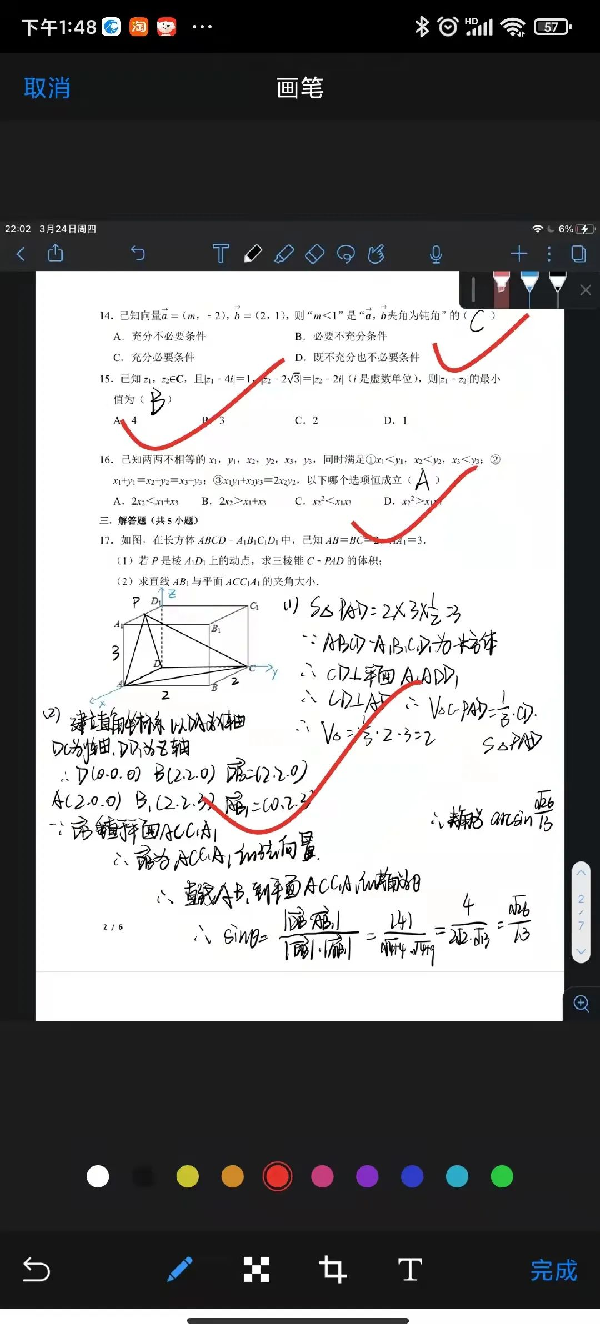 下午1:48 淘 ··· HD 57
取消 画笔
22:02 3月24日周四 6%
T
14. 已知向量a=(m, -2), b=(2, 1), 则“m<1”是“a, b夹角为钝角”的( C )
A. 充分不必要条件 B. 必要不充分条件
C. 充分必要条件 D. 既不充分也不必要条件
15. 已知z₁, z₂∈C, 且|z₁-4i|=1, |z₂-2√3|=|z₂-2i| (i是虚数单位), 则|z₁-z₂|的最小
值为( B )
A. 4 B. 3 C. 2 D. 1
16. 已知两两不相等的x₁, y₁, x₂, y₂, x₃, y₃, 同时满足①x₁<y₁, x₂<y₂, x₃<y₃; ②
x₁+y₁=x₂+y₂=x₃+y₃; ③x₁y₁+x₃y₃=2x₂y₂, 以下哪个选项恒成立( A )
A. 2x₂<x₁+x₃ B. 2x₂>x₁+x₃ C. x₂²<x₁x₃ D. x₂²>x₁x₃
三. 解答题(共5小题)
17. 如图, 在长方体ABCD-A₁B₁C₁D₁中, 已知AB=BC=2, AA₁=3.
(1)若P是棱A₁D₁上的动点, 求三棱锥C-PAD的体积;
(2)求直线AB₁与平面ACC₁A₁的夹角大小.
P D₁ z C₁ A₁ B₁ 3 D C y A B x 2 2
(1) S△PAD=2×3×½=3
∵ABCD-A₁B₁C₁D₁为长方体
∴CD⊥平面A₁ADD₁
∴CD⊥AD ∴V△C-PAD=⅓·CD·
S△PAD
∴V△=⅓·2·3=2
(2) 建立直角坐标系 以DA为x轴
DC为y轴, DD₁为z轴
∴D(0.0.0) B(2.2.0) DB=(2.2.0)
A(2.0.0) B₁(2.2.3) AB₁=(0.2.3)
∵DB垂直平面ACC₁A₁
∴DB为ACC₁A₁的法向量.
∴直线AB₁到平面ACC₁A₁的夹角为θ
∴sinθ=|DB·AB₁|/|DB|·|AB₁|=|4|/√4+4·√4+9=4/2√2·√13=√26/13
∴夹角为arcsin√26/13
2 / 6
2/7
T 完成